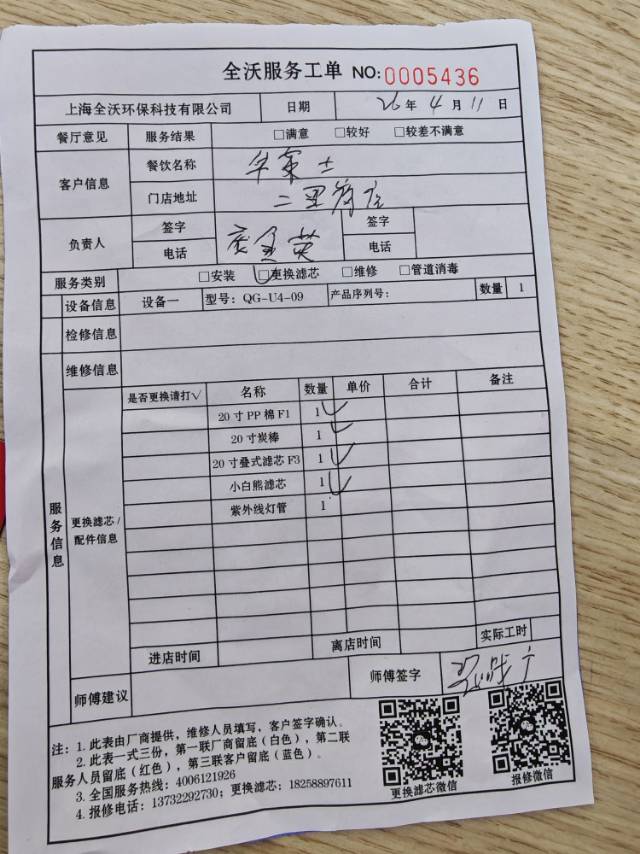 全沃服务工单 NO:0005436
上海全沃环保科技有限公司 日期 26年 4月 11日
餐厅意见 服务结果 □满意 □较好 □较差不满意
客户信息 餐饮名称 华莱士
门店地址 二里
负责人 签字 签字
电话 英 电话
服务类别 □安装 □更换滤芯 □维修 □管道消毒
设备信息 设备一 型号: QG-U4-09 产品序列号: 数量 1
检修信息
维修信息
是否更换请打√ 名称 数量 单价 合计 备注
20寸PP棉F1 1 √
20寸炭棒 1 √
20寸叠式滤芯F3 1 √
小白熊滤芯 1 √
紫外线灯管 1
服务信息
更换滤芯/
配件信息
进店时间 离店时间 实际工时
师傅建议 师傅签字
注: 1. 此表由厂商提供，维修人员填写，客户签字确认。
2. 此表一式三份，第一联厂商留底(白色)，第二联
服务人员留底(红色)，第三联客户留底(蓝色)。
3. 全国服务热线: 4006121926
4. 报修电话: 13732292730; 更换滤芯: 18258897611
更换滤芯微信 报修微信